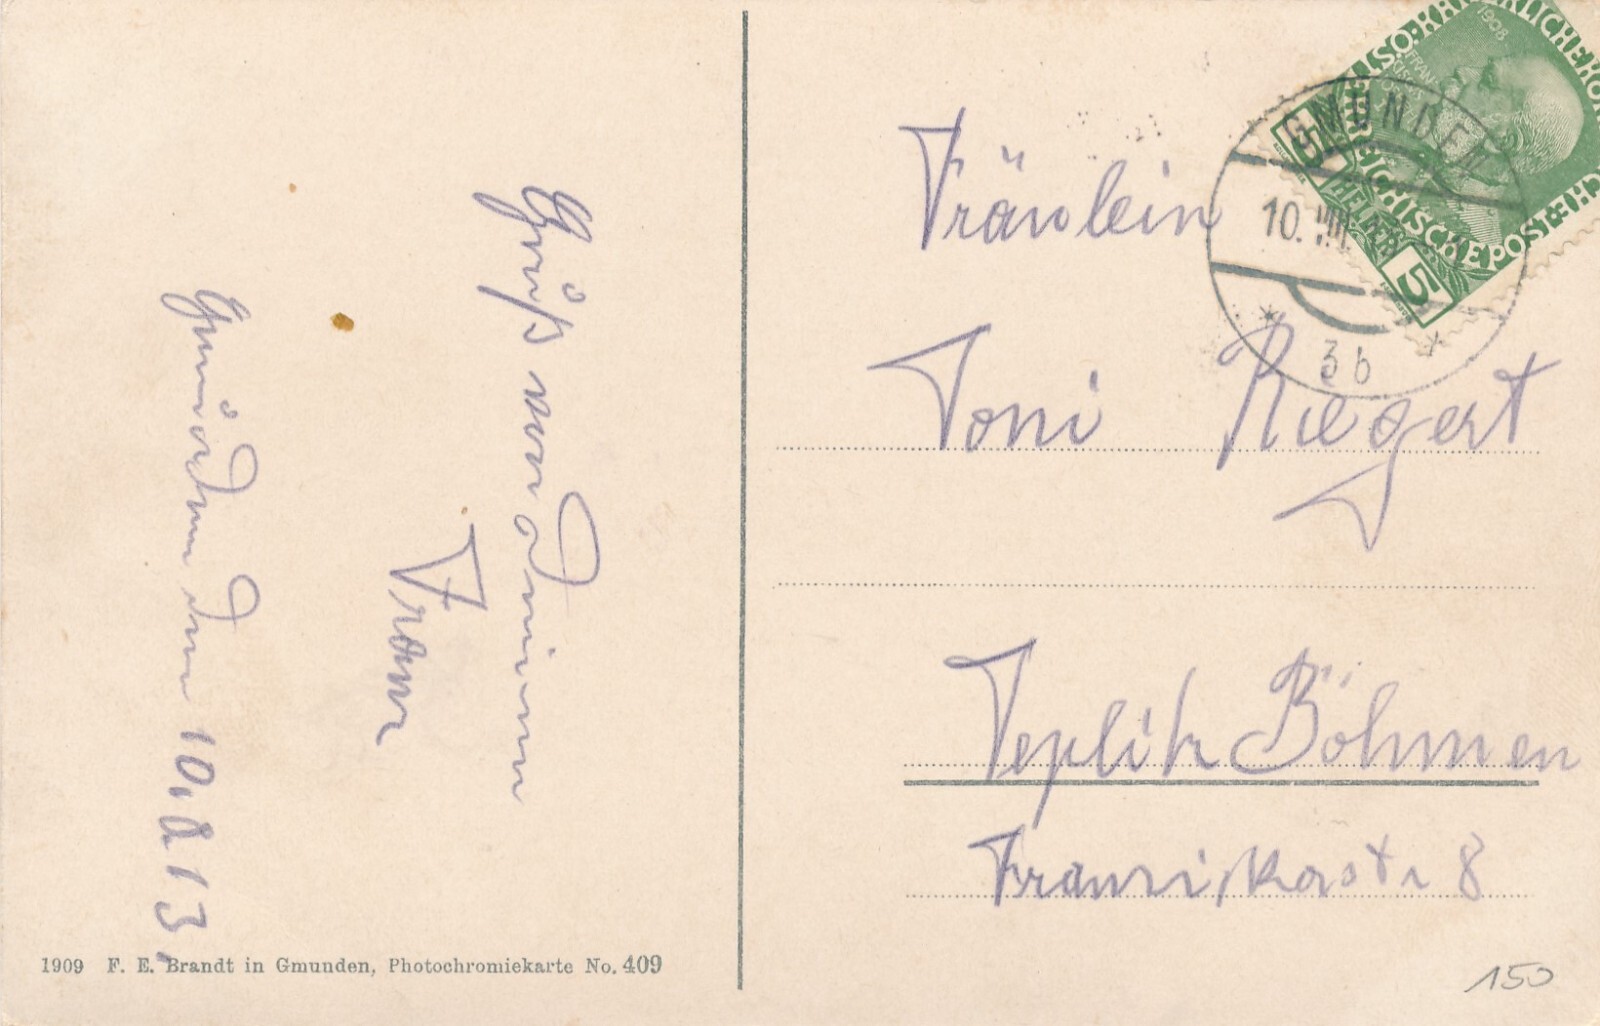 Gruß von Deinem
Franz
Gmunden den 10.8.13.
1909 F. E. Brandt in Gmunden, Photochromiekarte No. 409
1908
HELLER
5
5
GMUNDEN
10. VIII.
3b
Fräulein
Toni Riegert
Teplitz Böhmen
Franziskastr 8
150